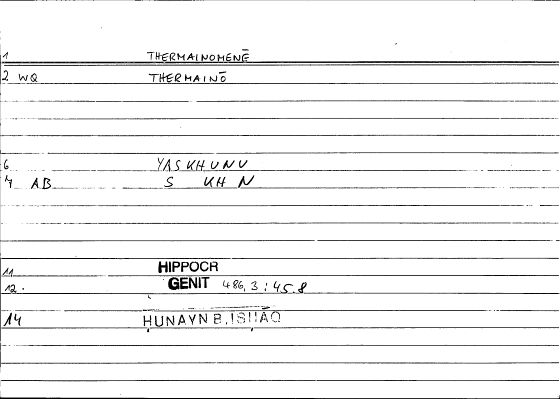 1 THERMAINOMENĒ
2 WQ THERMAINŌ
6 YASKHUNU
7 AB S KH N
11 HIPPOCR
12. GENIT 486, 3 ; 45.8
14 ḤUNAYN B. ISḤĀQ